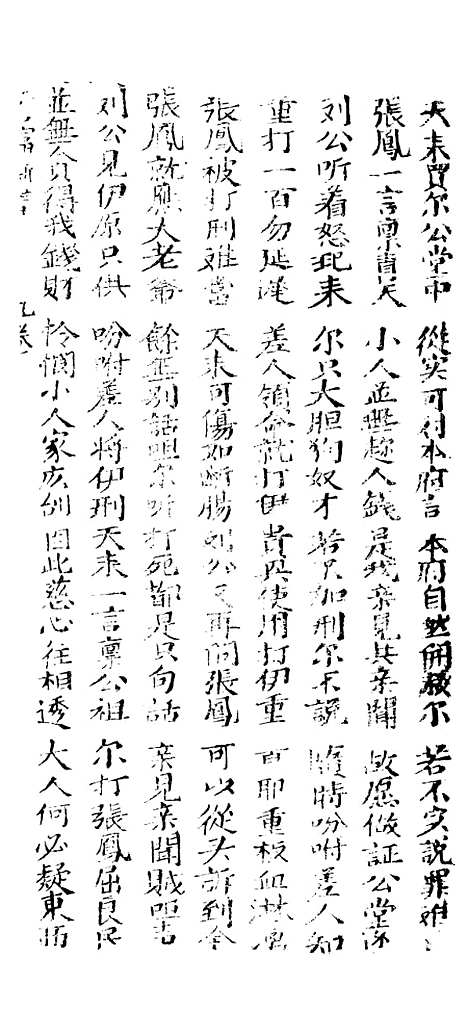 天来買尔公堂中 從实可对本府言 本府自然開赦尔 若不实说罪难
張鳳一言禀青天 小人並無趂人錢 是我亲見共亲聞 故愿做証公堂
刘公听着怒起来 尔只大胆狗奴才 若不加刑尔不說 随時吩咐差人知
重打一百勿延遲 差人領命就打伊 責具使用打伊重 百郎重板血淋
張鳳被打刑难当 天来可傷如断腸 刘公又再问張鳳 可以從头訴到今
張鳳就應大老爺 餘並别話 尔听 打死都是只句話 亲見亲聞賊
刘公見伊原只供 吩咐差人将伊刑 天来一言禀公祖 尔打張鳳屈良民
並無合貝得我錢財 怜憫小人家 因此慈心往相透 大人何必疑東西